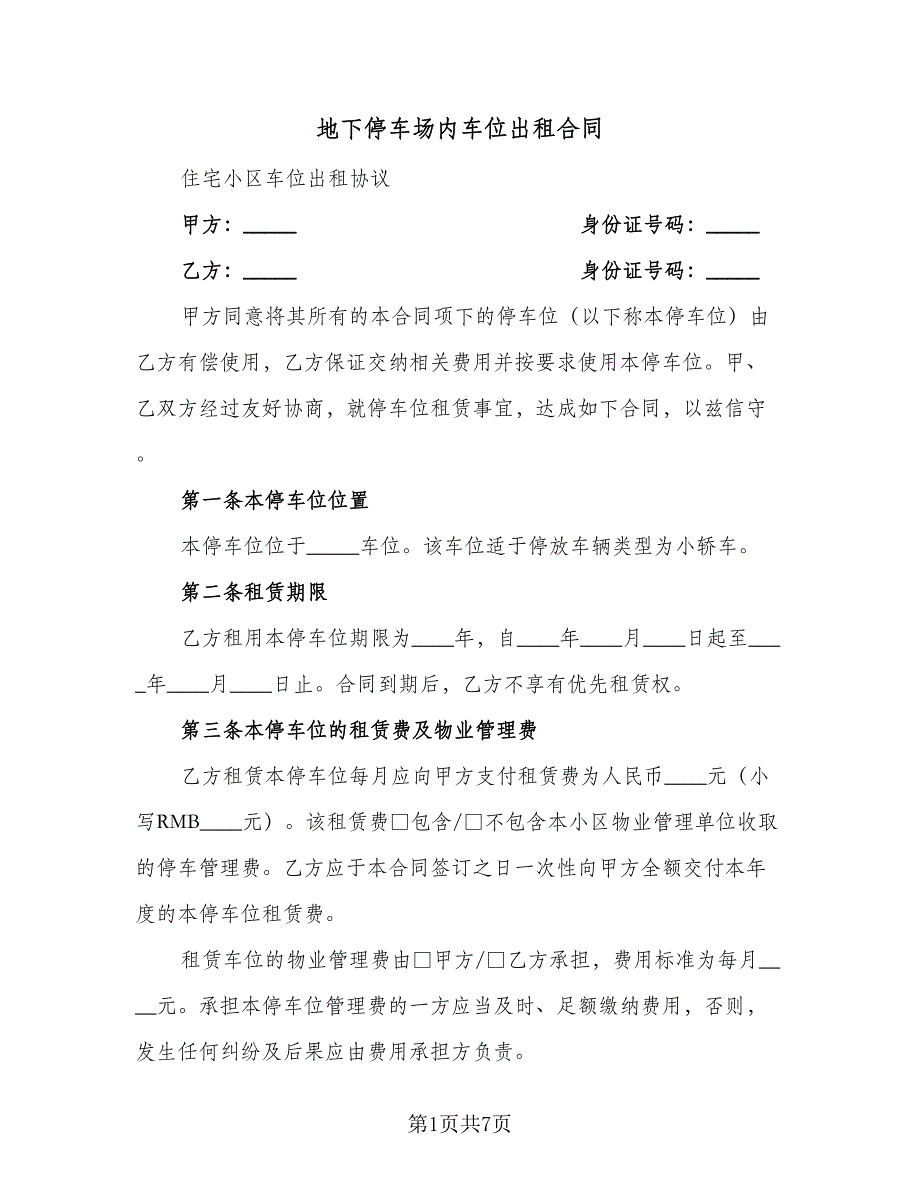 地下停车场内车位出租合同
住宅小区车位出租协议
甲方：_____ 身份证号码：_____
乙方：_____ 身份证号码：_____
甲方同意将其所有的本合同项下的停车位（以下称本停车位）由
乙方有偿使用，乙方保证交纳相关费用并按要求使用本停车位。甲、
乙双方经过友好协商，就停车位租赁事宜，达成如下合同，以兹信守
。
第一条本停车位位置
本停车位位于_____车位。该车位适于停放车辆类型为小轿车。
第二条租赁期限
乙方租用本停车位期限为____年，自____年____月____日起至___
_年____月____日止。合同到期后，乙方不享有优先租赁权。
第三条本停车位的租赁费及物业管理费
乙方租赁本停车位每月应向甲方支付租赁费为人民币____元（小
写RMB____元）。该租赁费□包含/□不包含本小区物业管理单位收取
的停车管理费。乙方应于本合同签订之日一次性向甲方全额交付本年
度的本停车位租赁费。
租赁车位的物业管理费由□甲方/□乙方承担，费用标准为每月__
__元。承担本停车位管理费的一方应当及时、足额缴纳费用，否则，
发生任何纠纷及后果应由费用承担方负责。
第1页共7页